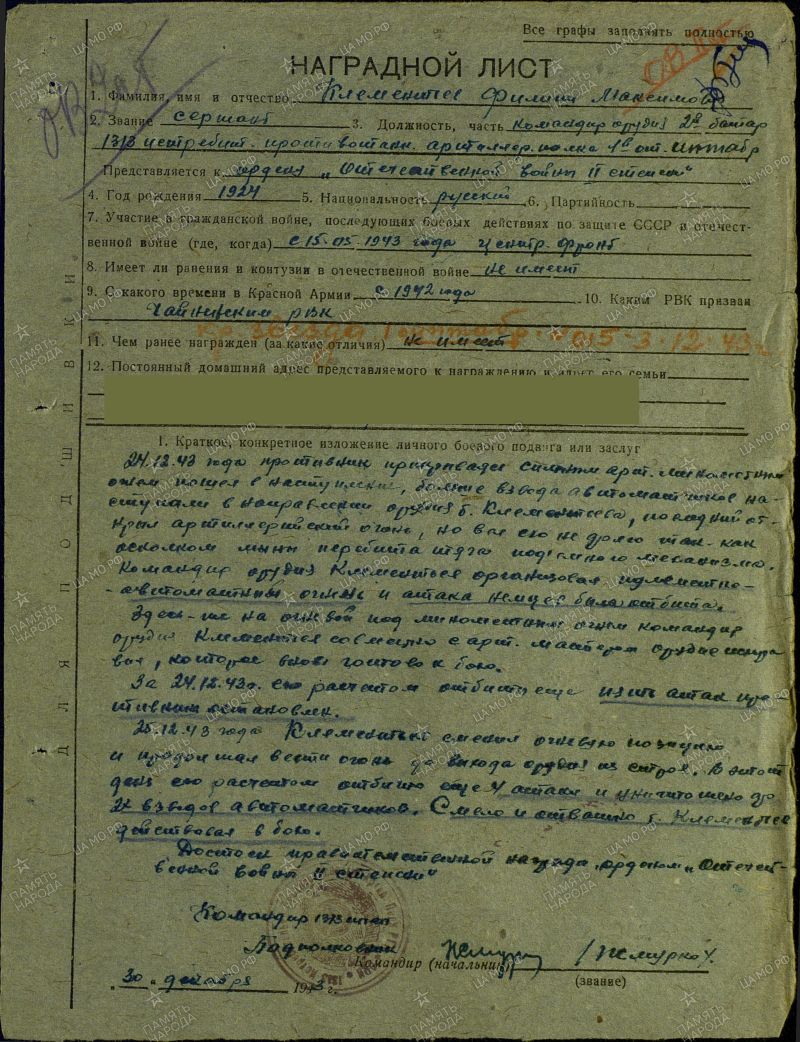 Все графы заполнять полностью
НАГРАДНОЙ ЛИСТ
1. Фамилия, имя и отчество Клементьев Филипп Максимович
2. Звание сержант 3. Должность, часть командир орудия 2й батар
1313 истребит. противотанк. артиллер. полка
Представляется к ордену „Отечественной войны II степени"
4. Год рождения 1924 5. Национальность русский 6. Партийность
7. Участие в гражданской войне, последующих боевых действиях по защите СССР и отечест-
венной войне (где, когда) с 15.05.1943 года Центр. фронт
8. Имеет ли ранения и контузии в отечественной войне не имеет
9. С какого времени в Красной Армии с 1942 года 10. Каким РВК призван
РВК
Кр. звезда 015-3.12.43г
11. Чем ранее награжден (за какие отличия) не имеет
12. Постоянный домашний адрес представляемого к награждению и адрес его семьи
1. Краткое, конкретное изложение личного боевого подвига или заслуг
24.12.43 года противник сильным арт. минометным
огнем пошел в наступление, больше взвода автоматчиков на-
ступали в направлении орудия т. Клементьева, последний от-
крыл артиллерийский огонь, но вел его не долго так-как
осколком мины перебита тяга подъемного механизма.
Командир орудия Клементьев организовал
автоматный огонь и атака немцев была отбита.
Здесь-же на огневой под минометным огнем командир
орудия Клементьев совместно с арт. мастером орудие испра
вил, которое вновь готово к бою.
За 24.12.43г. его расчетом отбиты еще атак про-
тивник остановлен.
25.12.43 года Клементьев сменил огневую позицию
и продолжал вести огонь до выхода орудия из строя. В этот
день его расчетом отбито еще 4 атаки и уничтожено до
2х взводов автоматчиков. Смело и отважно т. Клементьев
действовал в бою.
Достоин правительственной награды орденом „Отечест-
венной войны II степени"
Командир 1313 иптап
Подполковник
Командир (начальник)
(звание)
30 декабря 1943 г.
ДЛЯ ПОДШИВКИ
ПАМЯТЬ НАРОДА
ЦАМО.РФ